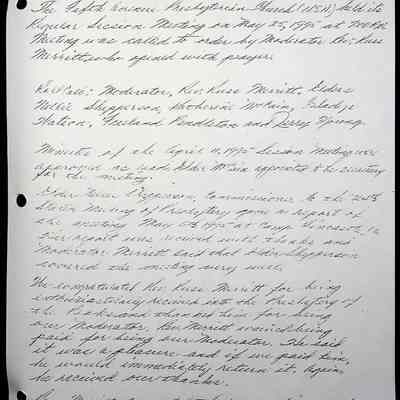 The Fifth Avenue Presbyterian Church (USA) held its
Regular Session Meeting on May 25, 1995 at
Meeting was called to order by Moderator Rev. Russ
Merritt, who opened with prayer.
Roll Call: Moderator, Rev. Russ Merritt, Elders
Nellie Shepperson, Katherine McCain, Gladys
Watson, Freeland Pendleton and Jerry Young.
Minutes of the April 11, 1995 Session Meeting were
approved as read. Elder McCain appointed to be secretary
for the meeting.
Elder Nellie Shepperson, Commissioner to the
Stated Meeting of Presbytery gave a report of
the meeting May 1995 at Camp
Her report was received with thanks and
Moderator Merritt said that Elder Shepperson
covered the meeting very well.
We congratulated Rev. Russ Merritt for being
enthusiastically received into the Presbytery of
the Peaks and thanked him for being
our Moderator. Rev. Merritt being
paid for being our Moderator. He said
it was a pleasure and if we paid him,
he would immediately return it. Again
he received our thanks.